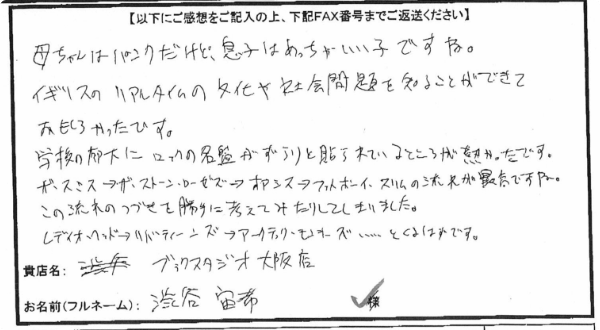 【以下にご感想をご記入の上、下記FAX番号までご返送ください】
母ちゃんはパンクだけど、息子はめっちゃいい子ですね。
イギリスのリアルタイムの文化や社会問題を知ることができて
おもしろかったです。
学校の部大に ロックの名盤がずらりと貼られているところが熱かったです。
ザ・スミス→ザ・ストーン・ローゼズ→オアシス→ファットボーイ・スリムの流れが最高ですね。
この流れのつづきを勝手に考えてみたりしてしまいました。
レディオヘッド→リバティーンズ→アークティック・モンキーズ……とくるはずです。
貴店名: ブックスタジオ大阪店
お名前(フルネーム): 渋谷 宙希 様